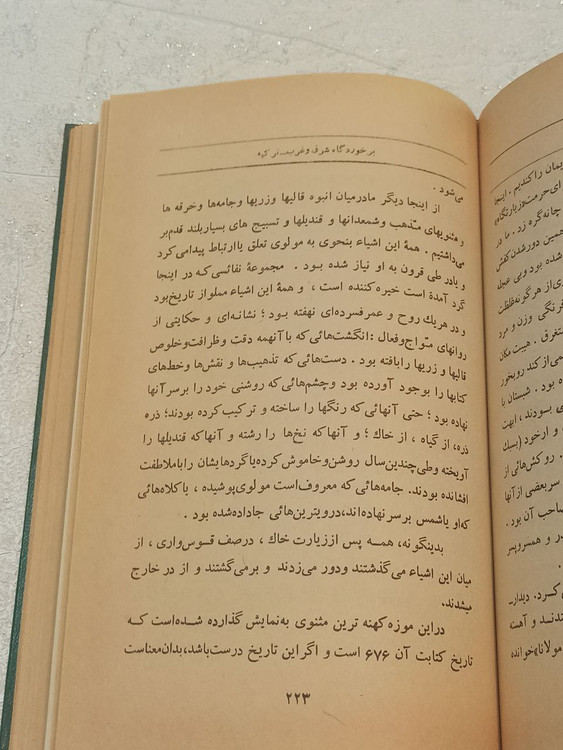 برخوردگاه شرق و غرب - ترکیه
می‌شود .
از اینجا دیگر مادرمیان انبوه قالیها وزریها وجامه‌ها وخرقه ها
و مثنویهای مذهب وشمعدانها و قندیلها و تسبیح های بسیاربلند قدم‌بر
می‌داشتیم . همهٔ این اشیاء بنحوی به مولوی تعلق یاارتباط پیدامی‌کرد
و یادر طی قرون به او نیاز شده بود . مجموعهٔ نفائسی که در اینجا
گرد آمده است خیره کننده است ، و همهٔ این اشیاء مملو از تاریخ بود
و در هریك روح و عمر فسرده‌ای نهفته بود ؛ نشانه‌ای و حکایتی از
روانهای مواج و فعال : انگشت‌هائی که با آنهمه دقت و ظرافت وخلوص
قالیها و زریها رابافته بود . دست‌هائی که تذهیب‌ها و نقش‌ها وخط‌های
کتابها را بوجود آورده بود وچشم‌هائی که روشنی خود را برسر آنها
نهاده بود ؛ حتی آنهائی که رنگها را ساخته و ترکیب کرده بودند ؛ ذره
ذره، از گیاه ، از خاك ؛ و آنها که نخ‌ها را رشته و آنها که قندیلها را
آویخته وطی چندین سال روشن وخاموش کرده یا گردهایشان را باملاطفت
افشانده بودند. جامه‌هائی که معروف است مولوی پوشیده ، یا کلاه‌هائی
که او یا شمس بر سر نهاده‌اند، در ویترین‌هائی جا داده شده بود .
بدینگونه، همــه پس از زیارت خاك ، درصف قوس‌واری ، از
میان این اشیاء می‌گذشتند ودور می‌زدند و برمی‌گشتند و از در خارج
میشدند.
دراین موزه کهنه ترین مثنوی به‌نمایش گذارده شده‌است که
تاریخ کتابت آن ۶۷۶ است و اگر این تاریخ درست‌باشد، بدان‌معناست
۲۲۳
یمان را کندیم . اینجا
چانه گره زد . ما در
همین دور شدن کفش
شده بود وبی عجله
فرنگی وزن و مرد
متفرق . هیبت مکان
ده بود . شبستان با
ی بودند ، ابهت
. رو کش‌هائی از
سر بعضی از آنها
صاحب آن بود .
در و همسر وپسر
کرد. دیدار
تدنــد و آهسته